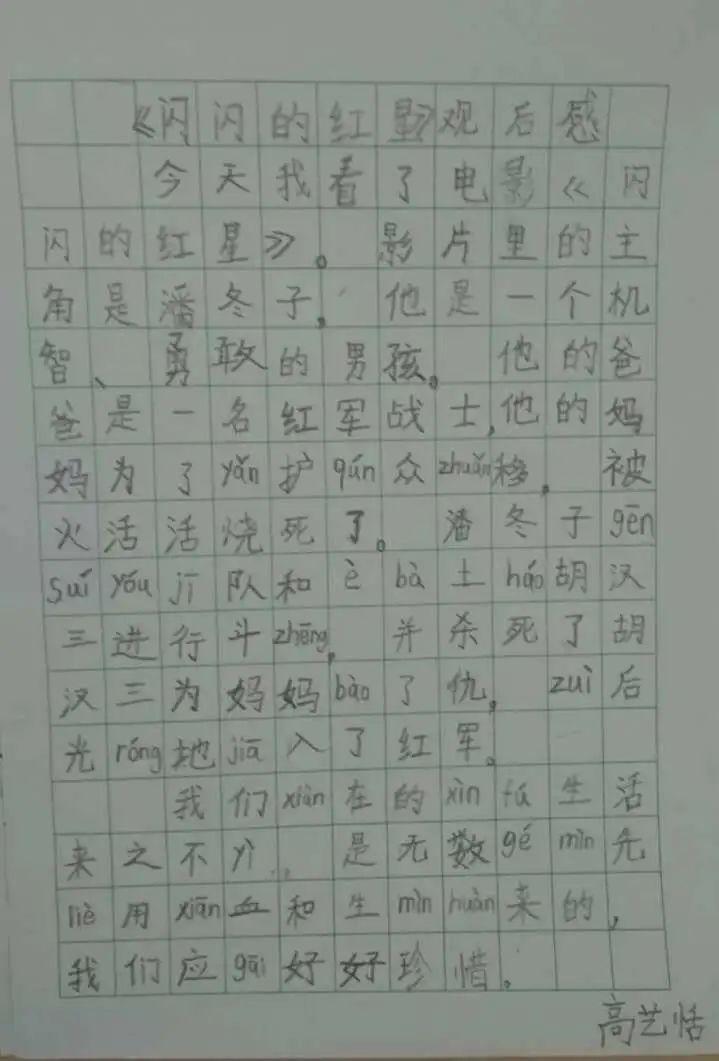 《闪闪的红星》观后感
今天我看了电影《闪
闪的红星》。影片里的主
角是潘冬子,他是一个机
智、勇敢的男孩。他的爸
爸是一名红军战士,他的妈
妈为了yǎn护qún众zhuǎn移,被
火活活烧死了。潘冬子gēn
suí yóu jī队和è bà土háo胡汉
三进行斗zhēng,并杀死了胡
汉三为妈妈bào了仇,zuì后
光róng地jiā入了红军。
我们xiàn在的xìn fú生活
来之不yì,是无数gé mìn先
liè用xiān血和生mìn huàn来的,
我们应gāi好好珍惜。
高艺恬